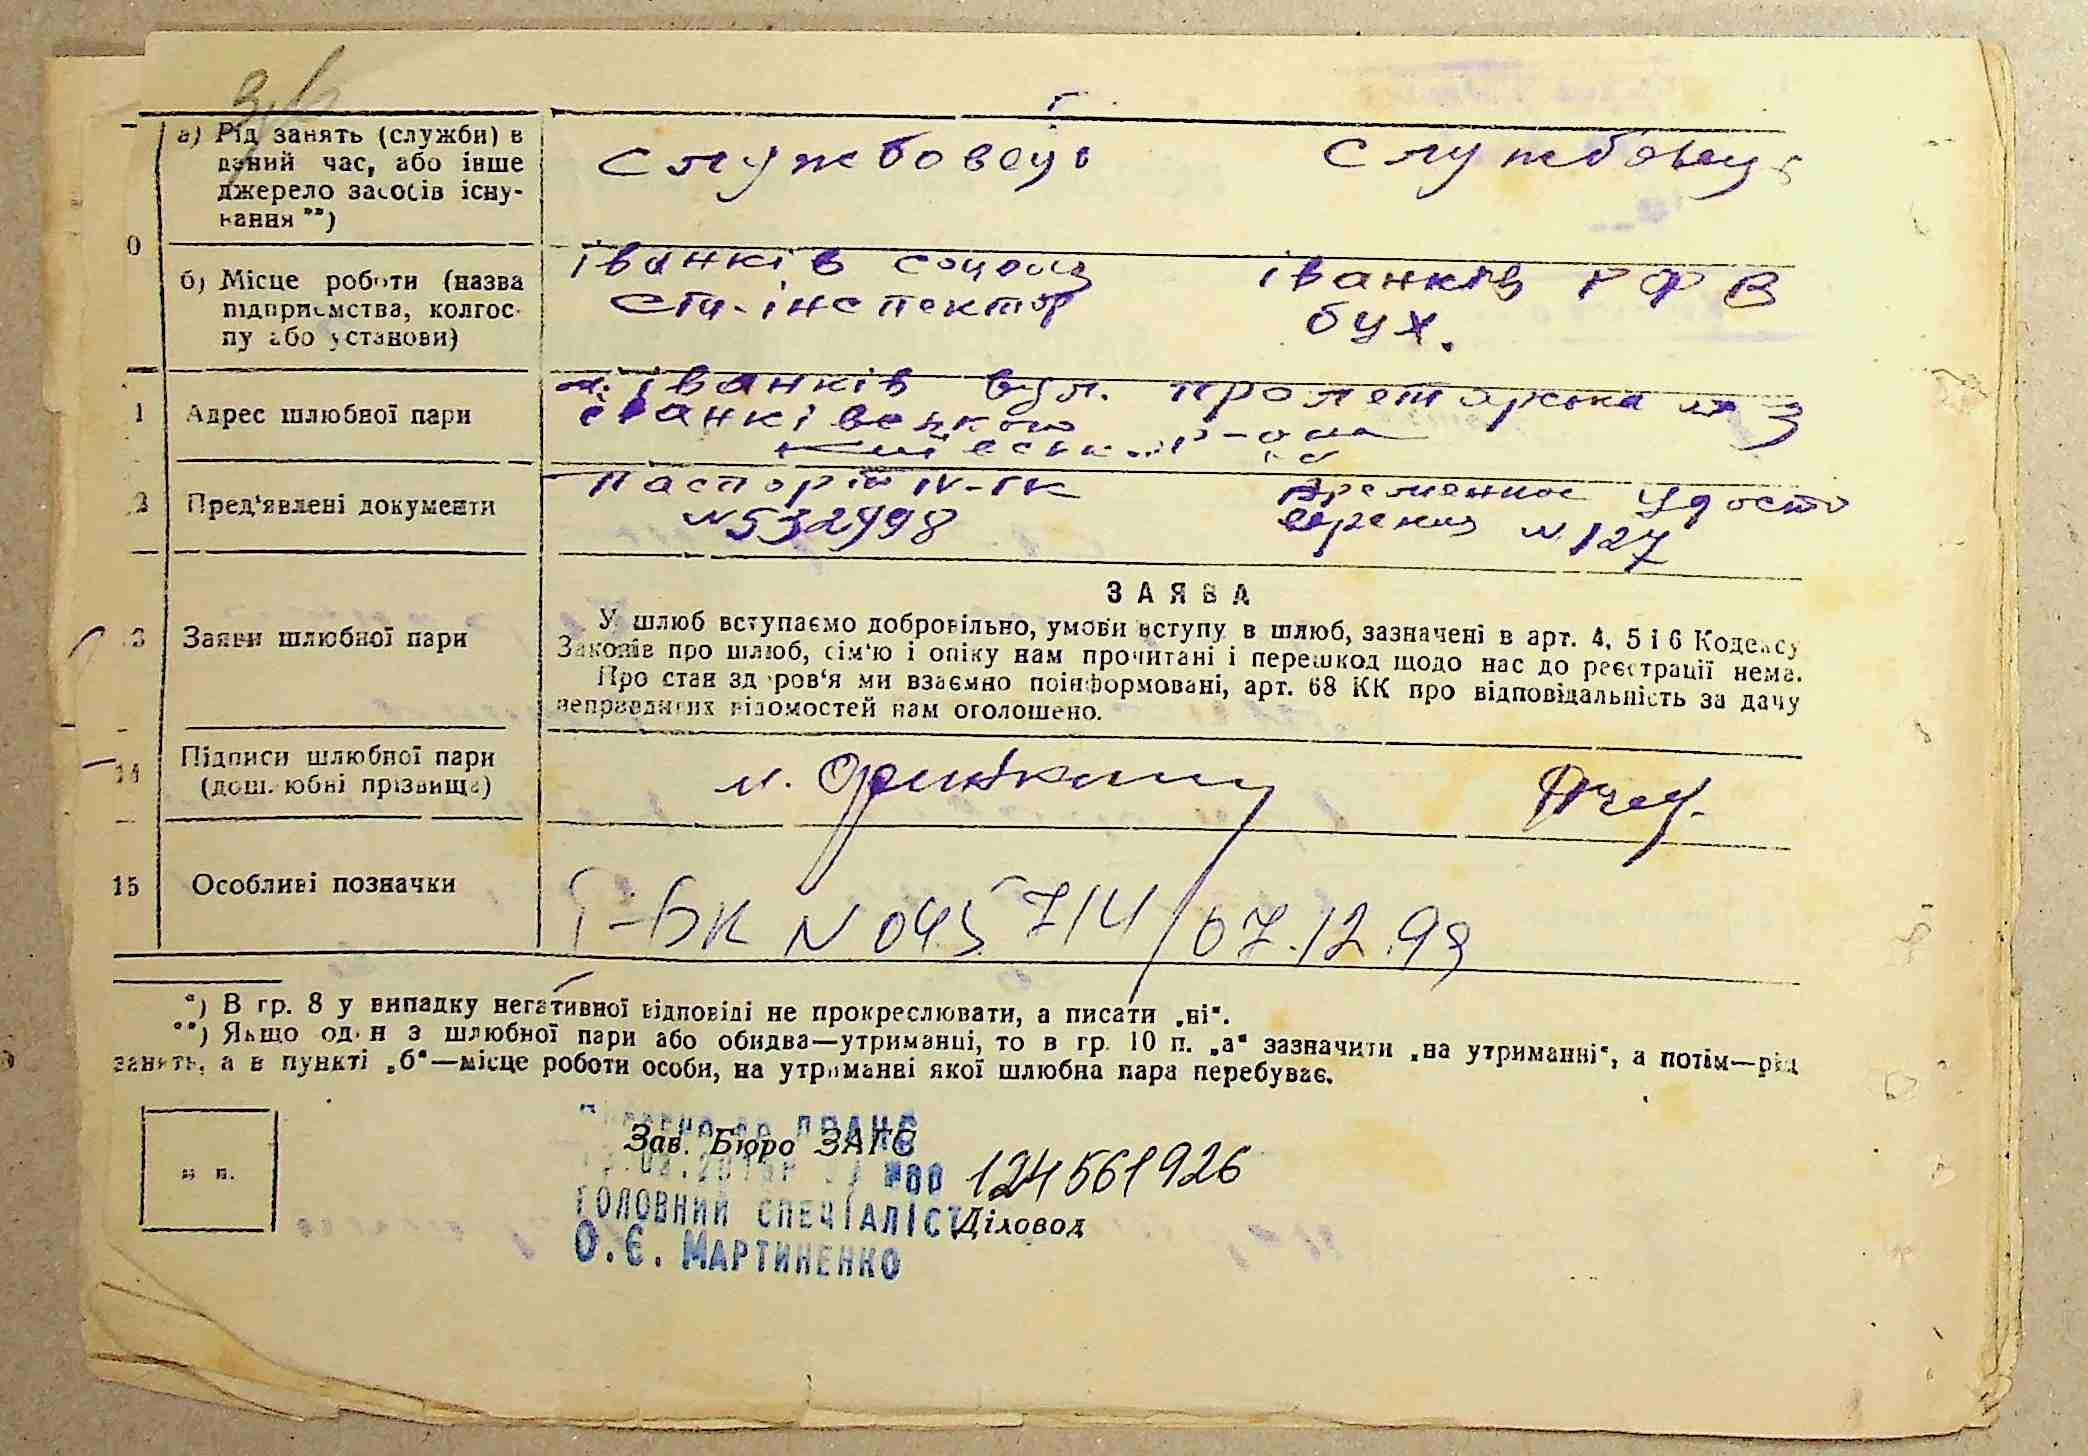 а) Рід занять (служби) в
даний час, або інше
джерело засобів існу-
вання **)
Службовець Службовець
0
б) Місце роботи (назва
підприємства, колгос-
пу або установи)
Іванків
Ст. інспектор
Іванків РФВ
бух.
1 Адрес шлюбної пари
м. Іванків вул. Пролетарська № 3
2 Пред'явлені документи
Паспорт IV-ГК
№ 532498
Временное удосто
верения № 127
ЗАЯВА
3 Заяви шлюбної пари
У шлюб вступаємо добровільно, умови вступу в шлюб, зазначені в арт. 4, 5 і 6 Кодексу
Законів про шлюб, сім'ю і опіку нам прочитані і перешкод щодо нас до реєстрації нема.
Про стан здоров'я ми взаємно поінформовані, арт. 68 КК про відповідальність за дачу
неправдивих відомостей нам оголошено.
14 Підписи шлюбної пари
(дошлюбні прізвища)
15 Особливі позначки
І-БК N 045714/07.12.99
*) В гр. 8 у випадку негативної відповіді не прокреслювати, а писати „ні".
**) Якщо один з шлюбної пари або обидва—утриманці, то в гр. 10 п. „а" зазначити „на утриманні", а потім—рід
занять, а в пункті „б"—місце роботи особи, на утриманні якої шлюбна пара перебуває.
м. п.
Зав. Бюро ЗАГС
124561926
ГОЛОВНИЙ СПЕЦІАЛІСТ
Діловод
О.Є. МАРТИНЕНКО